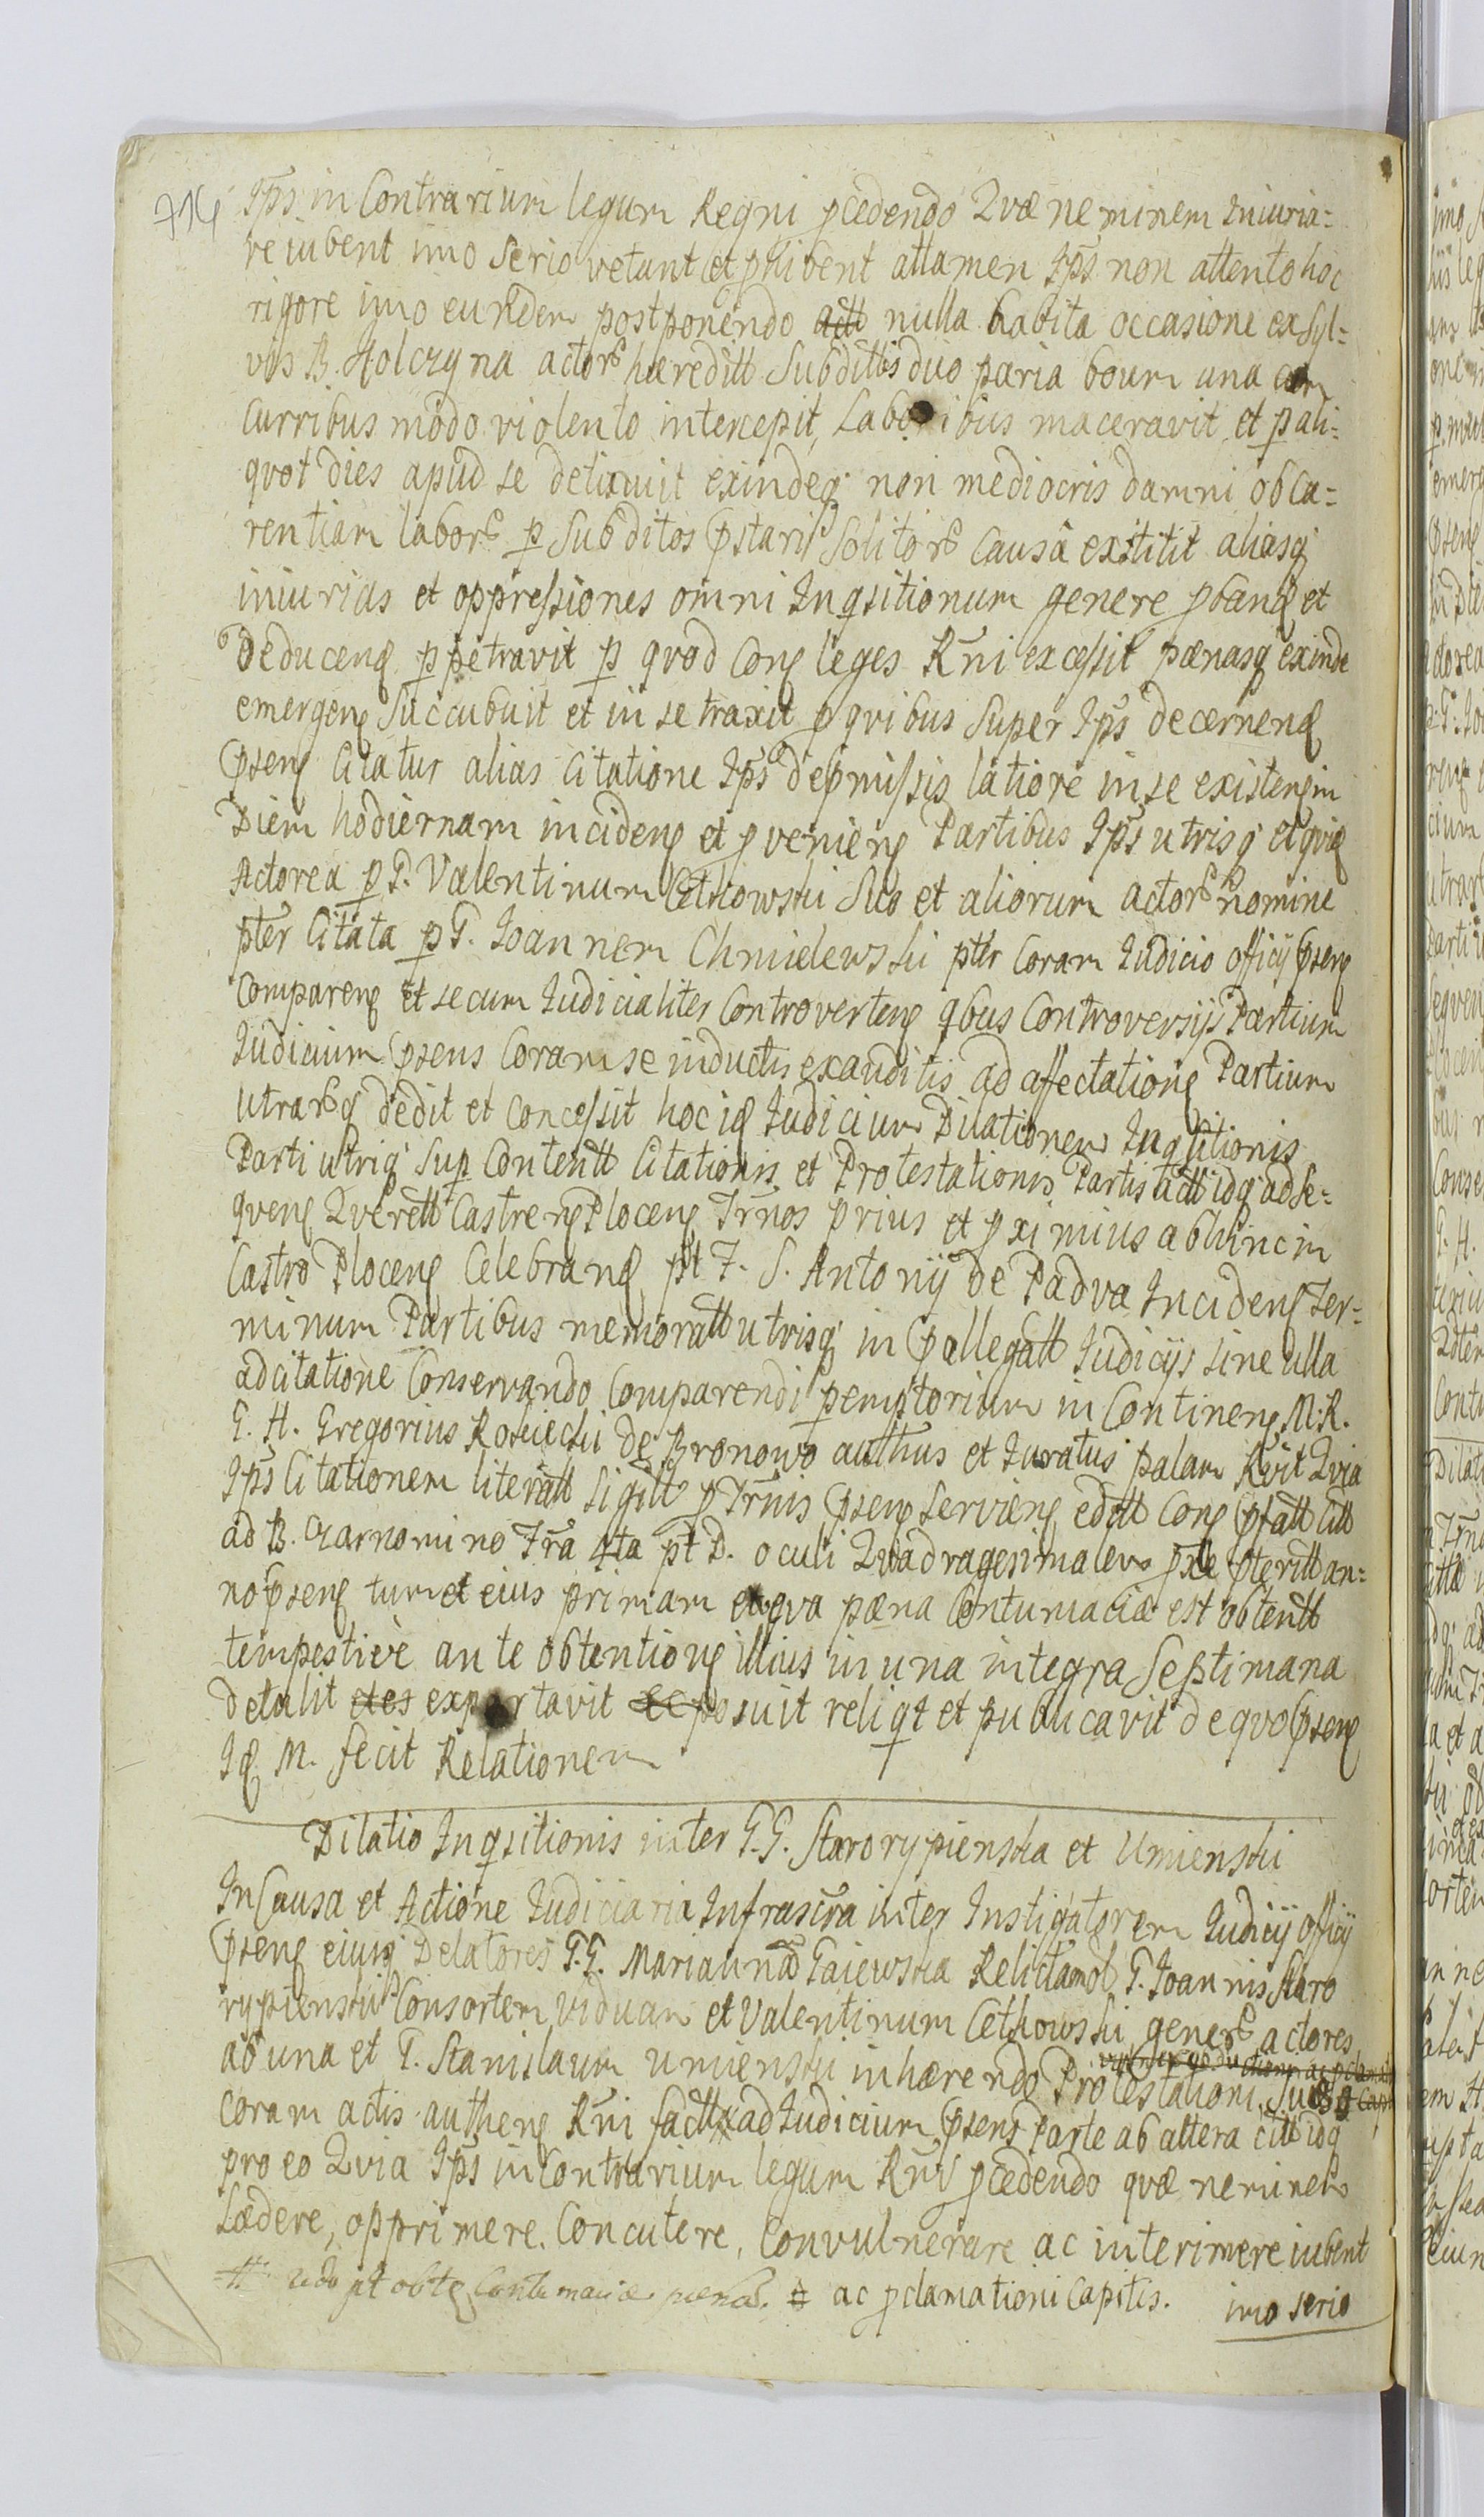 714
Ips in Contrarium legum Regni pcedendo Qvæ neminem Iniuria=
re iubent imo Serio vetant et phibent attamen Ips non attento hoc
rigore imo eundem postponendo nulla habita occasione ex Syl=
vis B. Holczyna actorũ hæreditt Subdittis duo paria boum una cum
Curribus modo violento intercepit, Laboribus maceravit et p ali=
qvot dies apud se detinuit exindeq non mediocris damni ob ca=
rentiam laborũ p Subditos pstari Solitorũ Causa exstitit aliasq
iniurias et oppressiones omni Inqsitionum genere pband et
deducend ppetravit p qvod Conq leges Rni excessit pænasq exinde
emergenq Succubuit et in se traxit p qvibus Super Ips decernend
psenq Citatur alias Citatione Ips depmissis latiore in se existenq in
Diem hodiernam incidenq et pvenienq Partibus Ips utrisq et qvid
Actorea p G. Valentinum Cethowski Suo et aliorum actorũ nomine
pter Citata p G. Ioannem Chmielewski pter Coram Iudicio officij psenq
Comparenq et secum Iudicialiter Controvertenq qbus Controversijs Partium
Iudicium psens Coram se inductis exauditis ad affectationq Partium
utrarũq dedit et Concessit hoc id Iudicium Dilationem Inqsitionis
Parti utriq Sup Contentt Citationis et Protestationis Partis actt idq ad Se=
qvenq Qverett Castrenq Plocenq Trnos prius et pximius abhinc in
Castro Plocenq Celebrand pt F. S. Antonij de Padva Incidenq Ter=
minum Partibus memoratt utrisq in pallegatt Iudicijs sine ulla
adcitatione Conservando Comparendi pemptorium in Continenq M. R.
G. H. Gregorius Rościecki de Bronowo autthus et Iuratus palam Rvit Qvia
Ips Citationem literatt Sigitt p Trnis psenq servienq editt Conq pfatt Citt
ad B. Czarnomino Fra 4ta pt D. oculi Qvadragesimalem pxe pteritt an=
no psenq tum et eius primam pæna Contumaciæ est obtentt
tempestive ante obtentionq illius in una integra Septimana
detulit exportavit posuit reliqt et publicavit de qvo psenq
Id M. fecit Relationem
Dilatio Inqsitionis inter G.G. Starorypienska et Umienski
In Causa et Actione Iudiciaria Infrascra inter Instigatorem Iudicij officij
psenq eiusq Delatores G.G. Mariannã Gaiewska Relictam ol G. Ioannis Staro
rypienski Consortem Viduam et Valentinum Cethowski generũ actores
ab una et G. Stanislaum Umienski inhærendo Protestationi
Coram actis authenq Rni factt ad Iudicium psens Parte ab altera citt idq
pro eo Qvia Ips in Contrarium legum Rni pcedendo qvæ neminem
Lædere, opprimere, Concutere, Convulnerare ac interimere iubent
# pt obtq Contumaciæ # ac pclamationi Capitis. imo serio